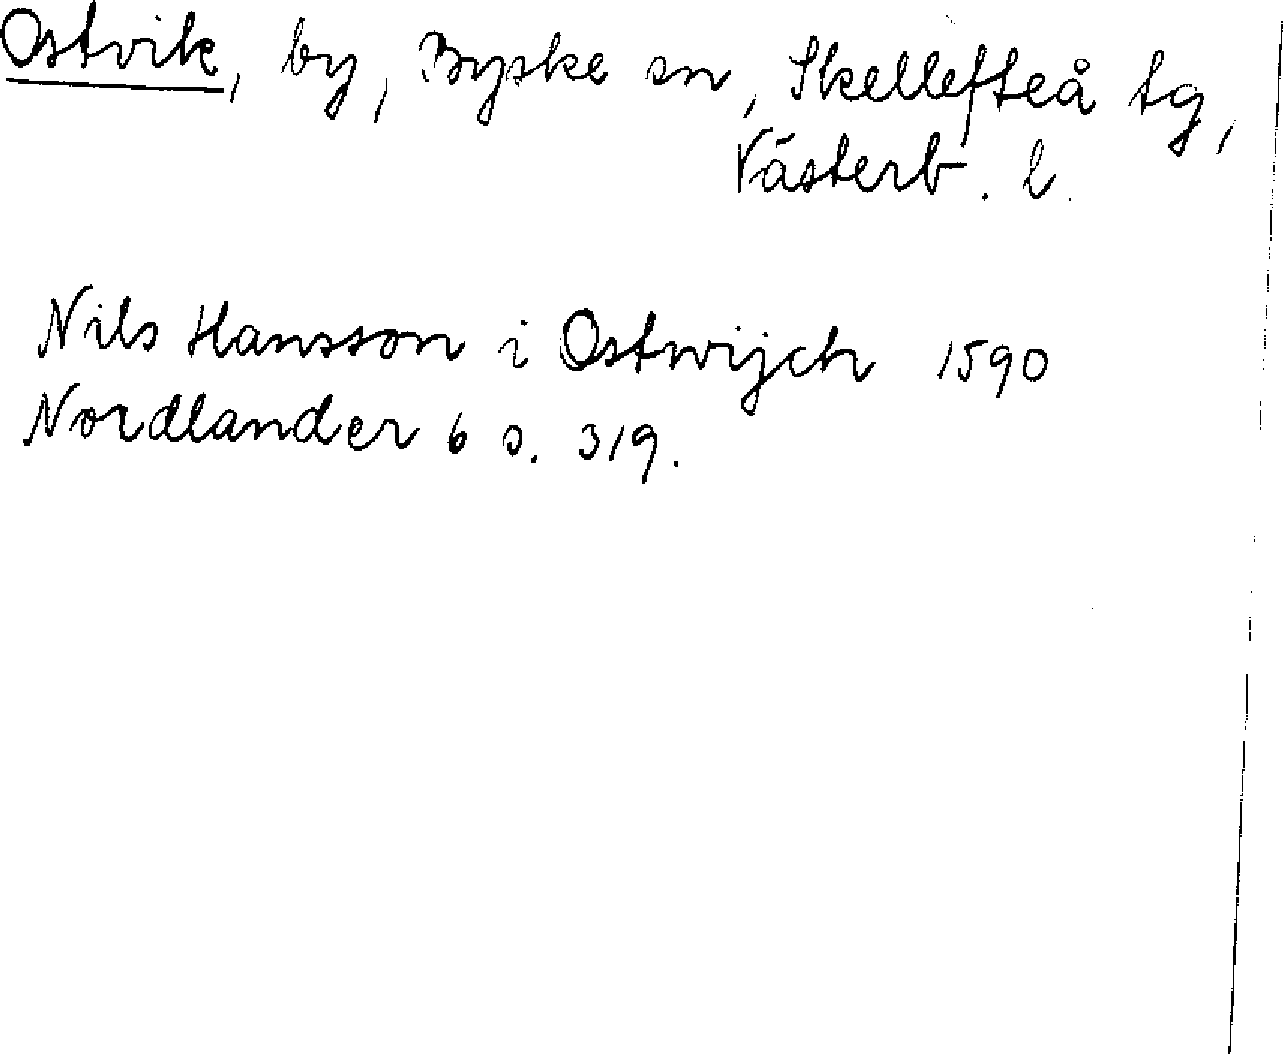 Ostvik, by, Byske sn, Skellefteå tg,
Västerb. l.
Nils Hansson i Ostwijch 1590
Nordlander 6 s. 319.